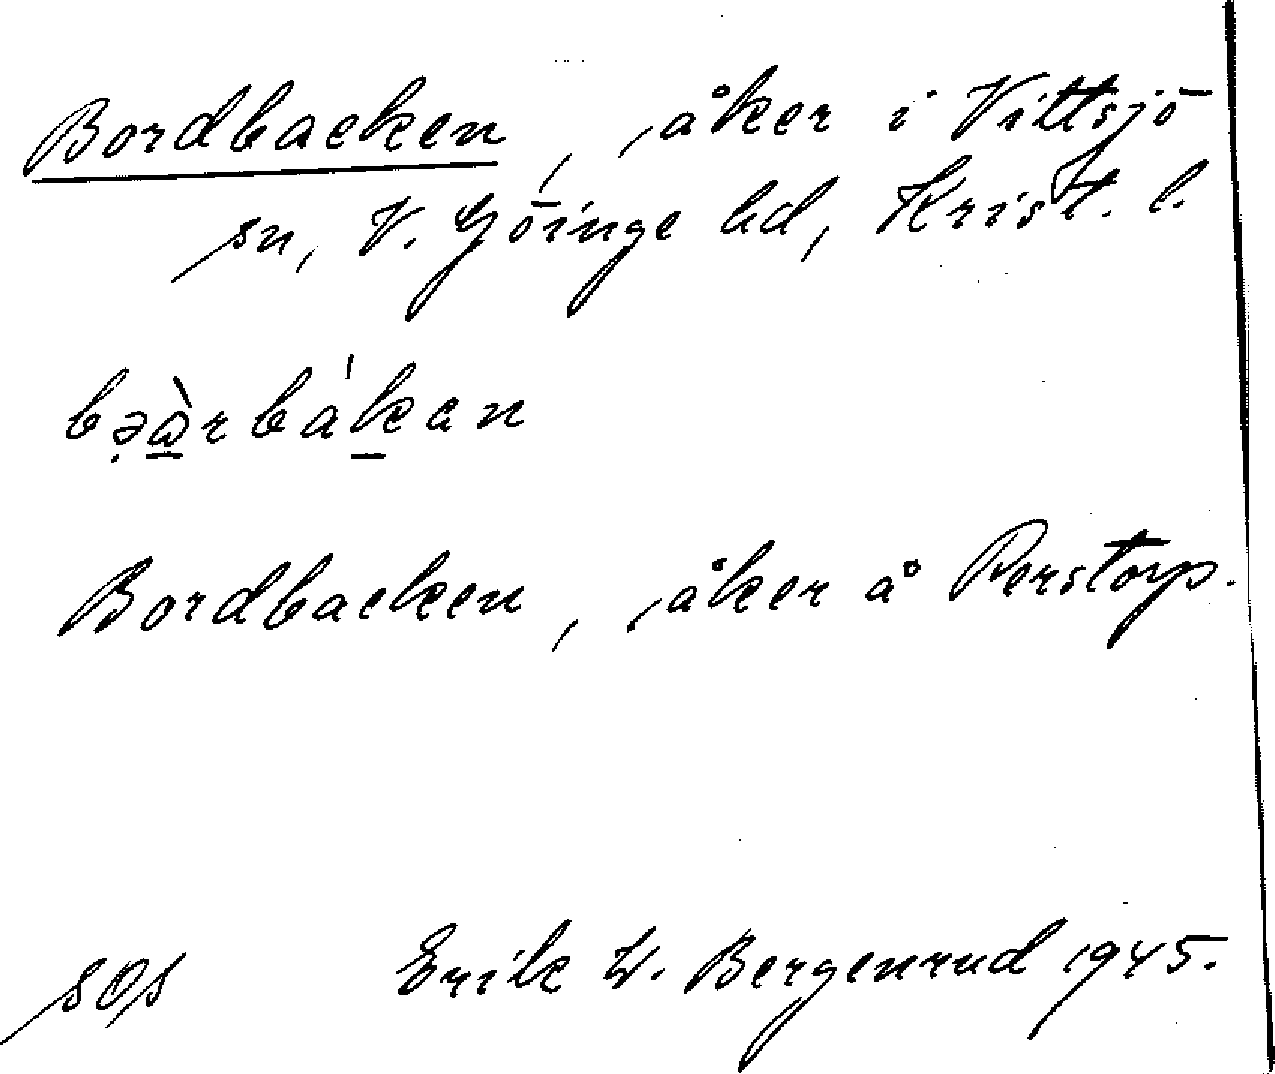 Bordbacken, åker i Vittsjö
sn, V. Göinge hd, Krist. l.
bə̣ɷ̠̀rbák̠an
Bordbacken, åker å Perstorp.
sOs Erik W. Bergenrud 1945.